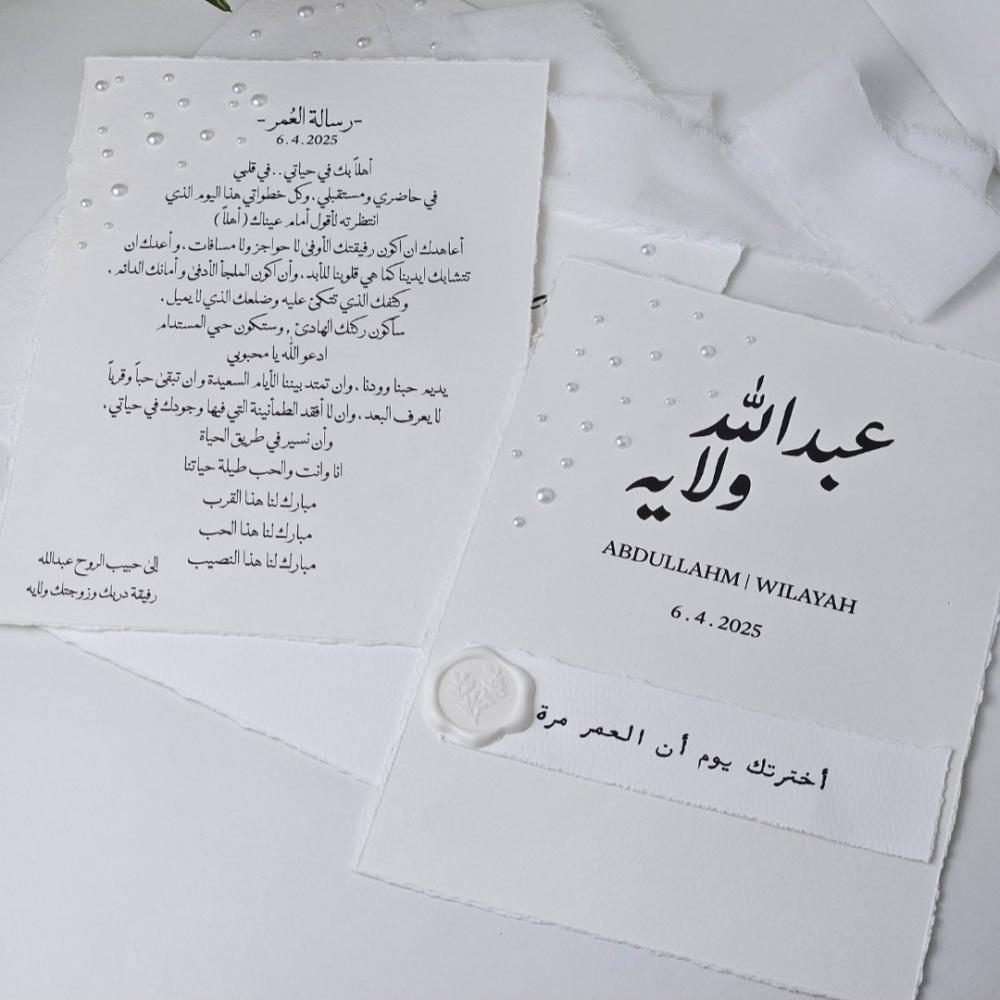 -رسالة العُمر-
6.4.2025
أهلاً بك في حياتي..في قلبي
في حاضري ومستقبلي.وكل خطواتي هذا اليوم الذي
انتظرته لأقول أمام عيناك (أهلاً)
أعاهدك ان اكون رفيقتك الأوفى لا حواجز ولا مسافات .وأعدك ان
تتشابك ايدينا كما هي قلوبنا للأبد .وأن اكون الملجأ الأدفى وأمانك الدائم .
وكتفك الذي تتكئ عليه وضلعك الذي لا يميل .
سأكون ركنك الهادئ , وستكون حبي المستدام
ادعو الله يا محبوبي
يديم حبنا وودنا .وان تمتد بيننا الأيام السعيدة وان تبقى حباً وقرباً
لا يعرف البعد .وان لا أفقد الطمأنينة التي فيها وجودك في حياتي.
وأن نسير في طريق الحياة
انا وانت والحب طيلة حياتنا
مبارك لنا هذا القرب
مبارك لنا هذا الحب
مبارك لنا هذا النصيب
الى حبيب الروح عبدالله
رفيقة دربك وزوجتك ولايه
عبدالله
ولايه
ABDULLAHM | WILAYAH
6 . 4 . 2025
أخترتك يوم أن العمر مرة